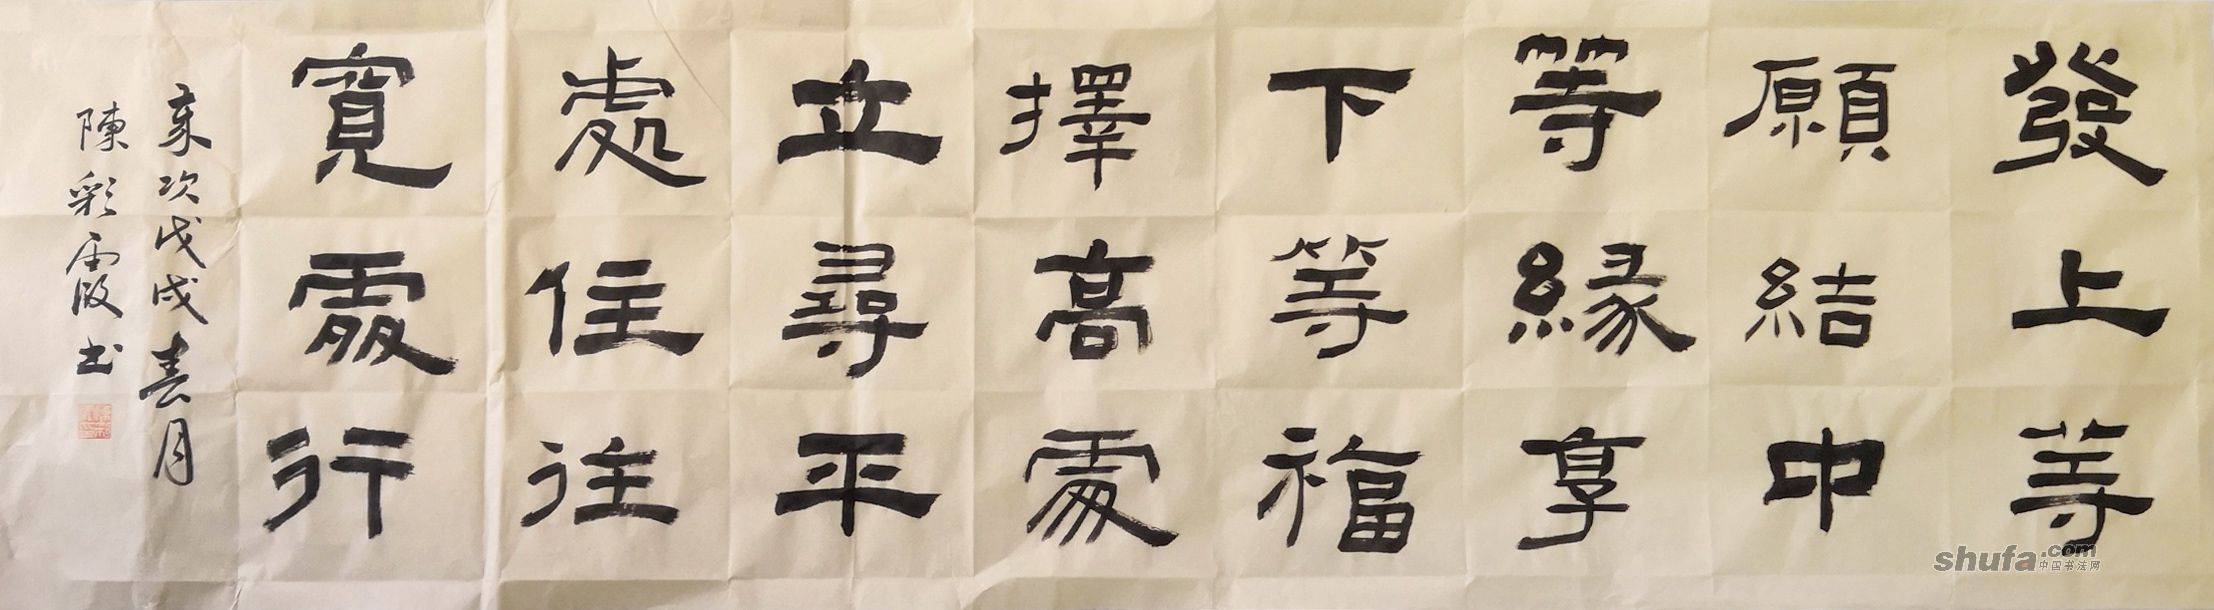 發上等
願結中
等緣享
下等福
擇高處
立尋平
處住往
寬處行
歲次戊戌春月
陳彩霞书
shufa.com
中国书法网